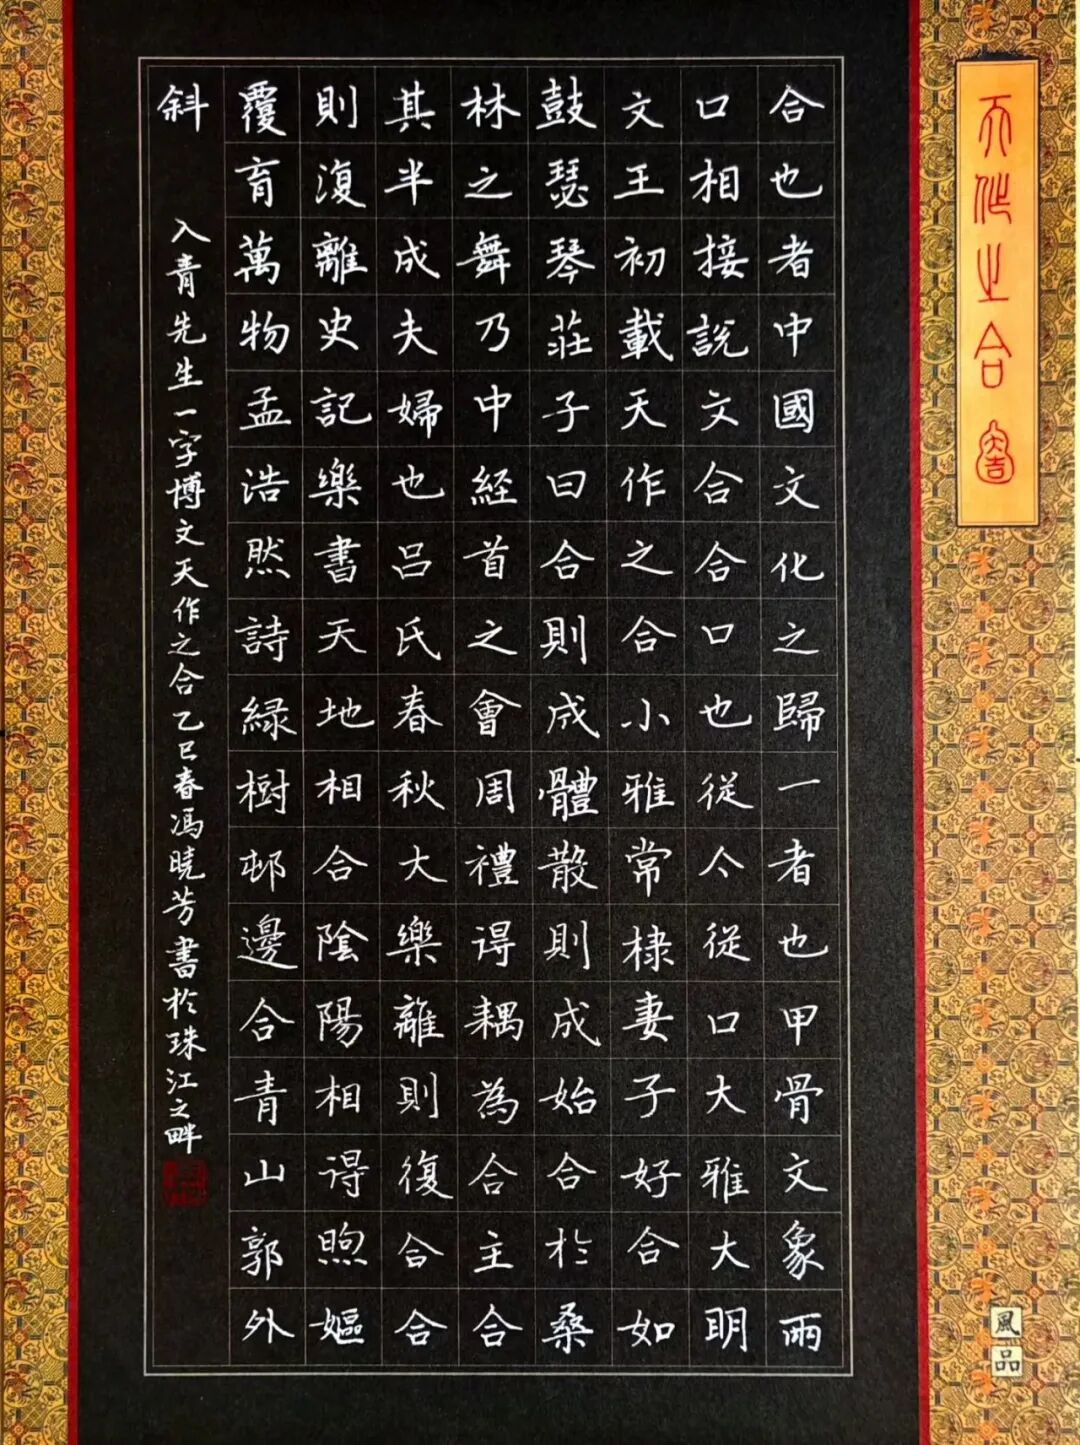 天作之合
合也者中國文化之歸一者也甲骨文象兩
口相接說文合合口也從亼從口大雅大明
文王初載天作之合小雅常棣妻子好合如
鼓瑟琴莊子曰合則成體散則成始合於桑
林之舞乃中經首之會周禮得耦為合主合
其半成夫婦也呂氏春秋大樂離則復合合
則復離史記樂書天地相合陰陽相得煦嫗
覆育萬物孟浩然詩綠樹邨邊合青山郭外
斜
入青先生一字博文天作之合乙巳春馮曉芳書於珠江之畔
風品